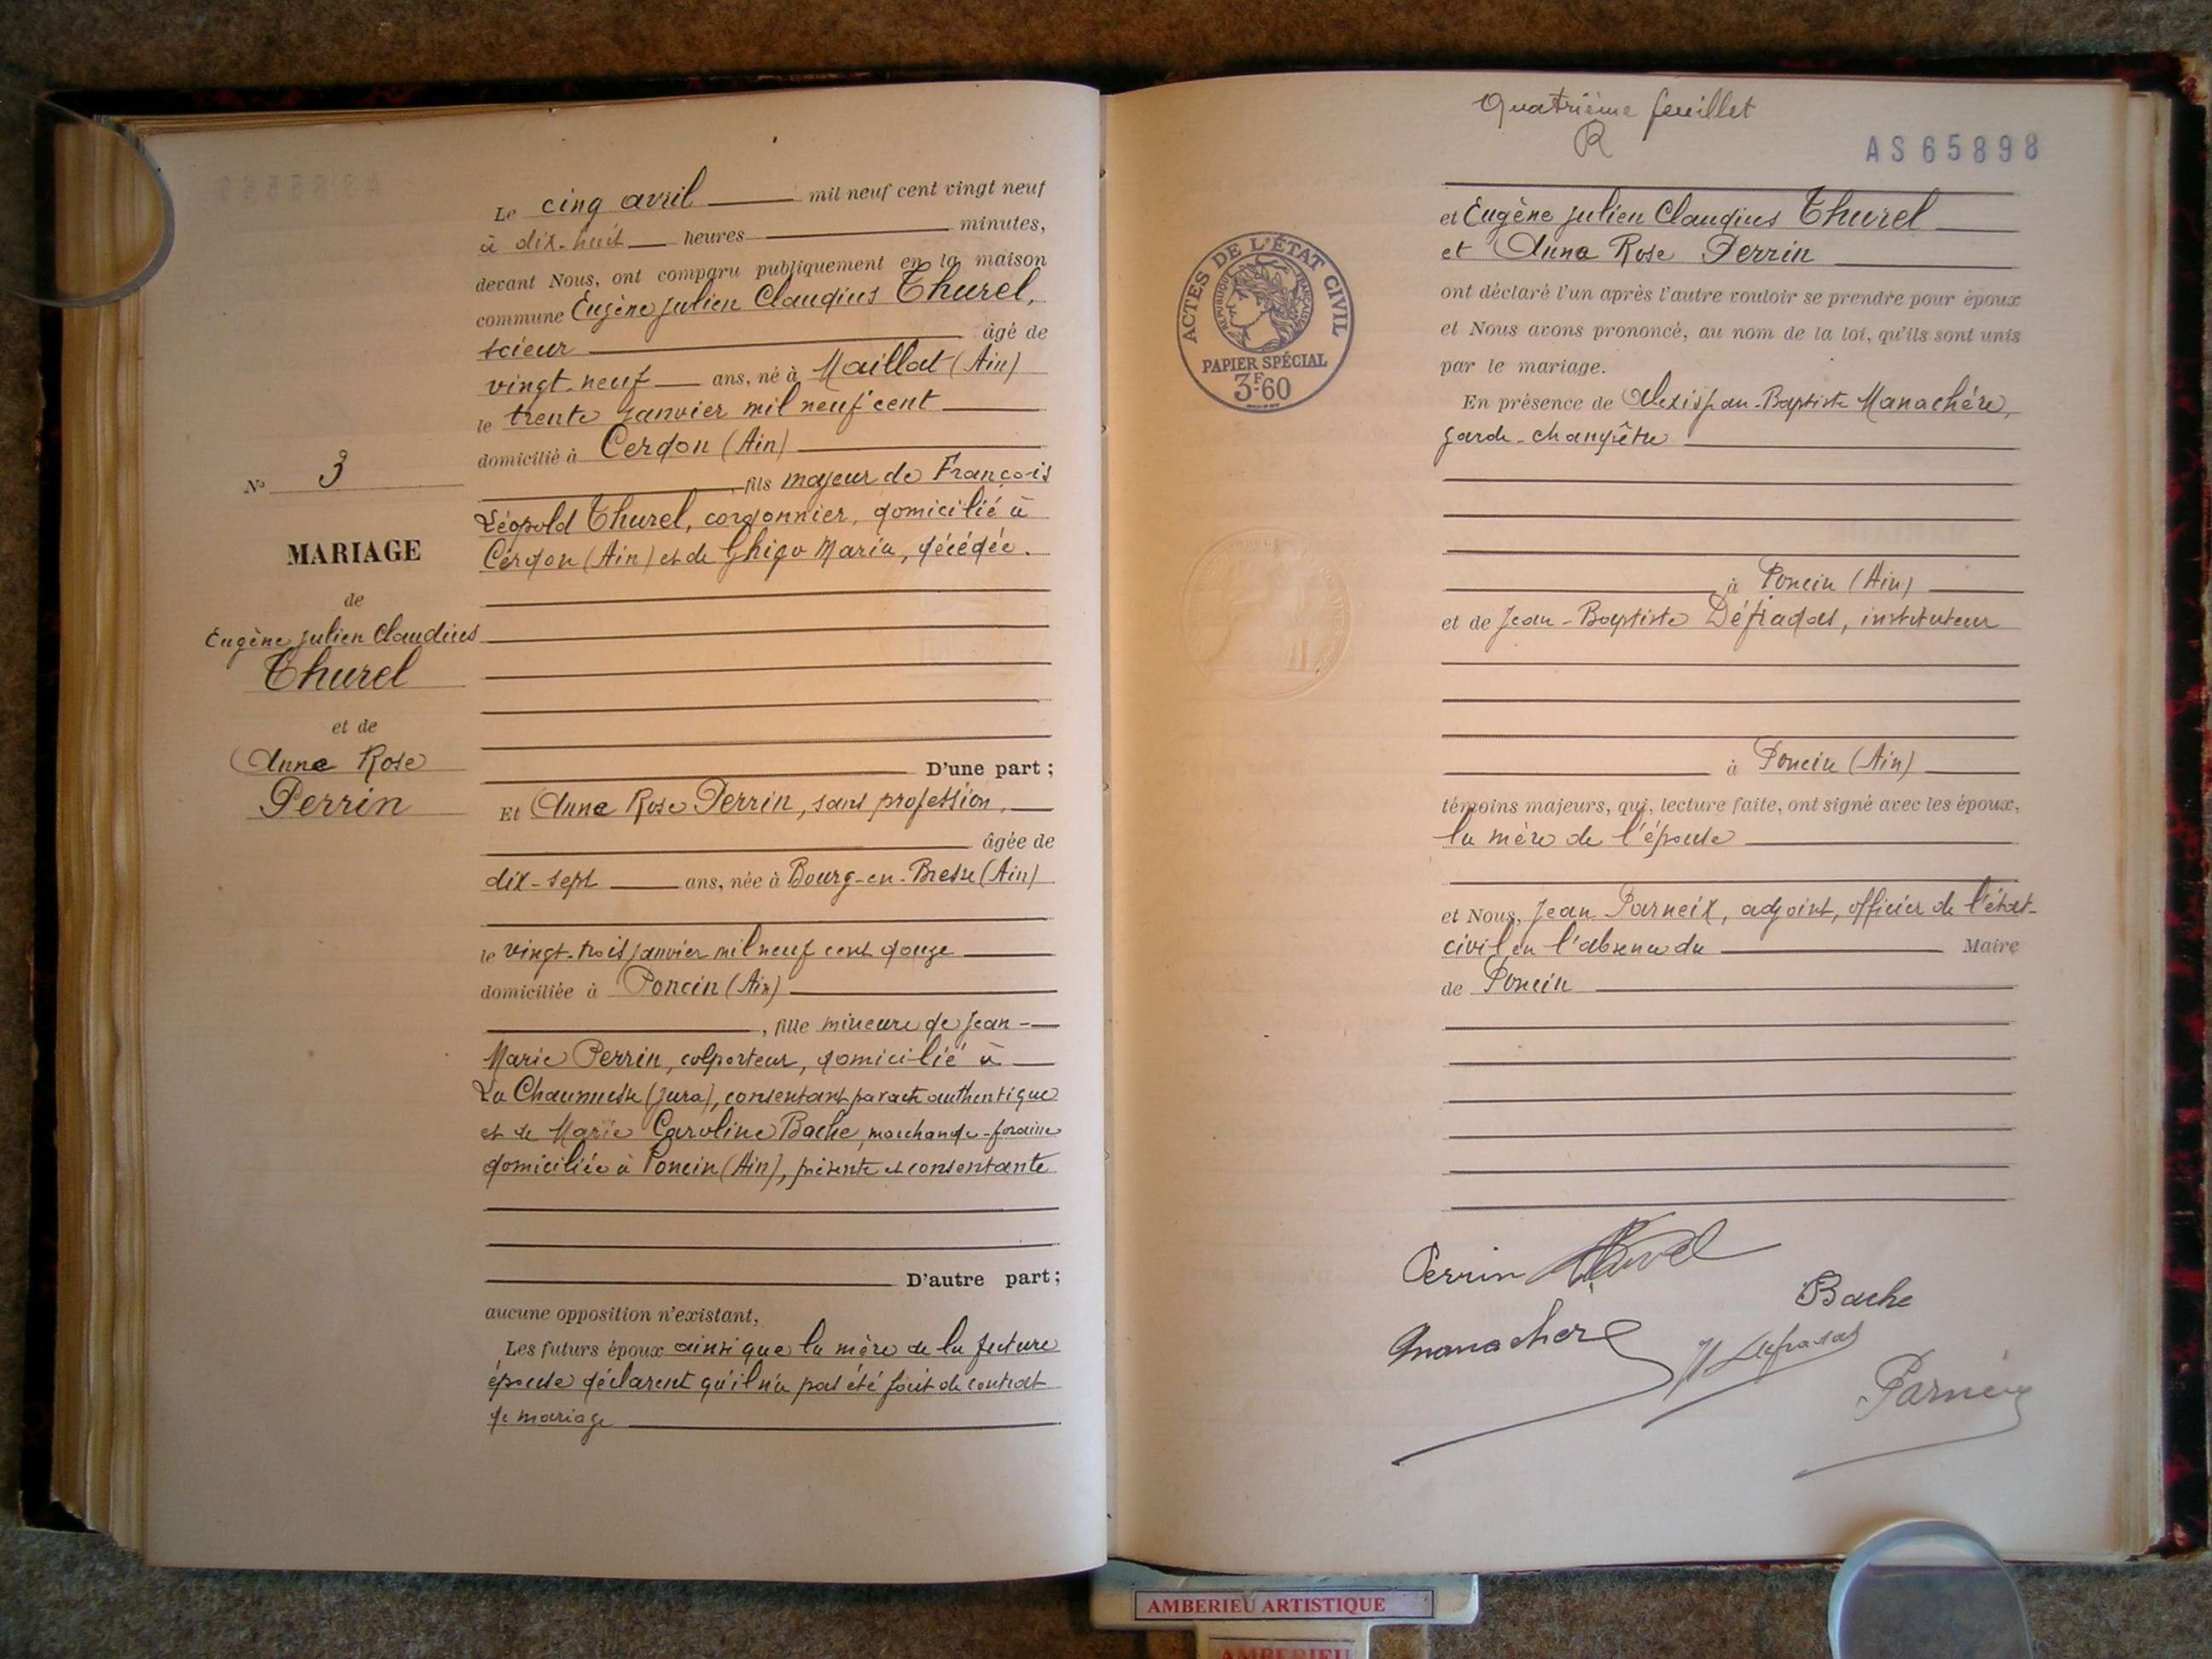 Le cinq avril mil neuf cent vingt neuf
à dix-huit heures minutes,
devant Nous, ont comparu publiquement en la maison
commune Eugène Julien Claudius Thurel,
scieur âgé de
vingt-neuf ans, né à Maillat (Ain)
le trente janvier mil neuf cent
domicilié à Cerdon (Ain)
, fils majeur de François
Léopold Thurel, cordonnier, domicilié à
Cerdon (Ain) et de Ghigo Maria, décédée.
D'une part ;
Et Anna Rose Perrin, sans profession,
âgée de
dix-sept ans, née à Bourg-en-Bresse (Ain)
le vingt-trois janvier mil neuf cent douze
domiciliée à Poncin (Ain)
, fille mineure de Jean-
Marie Perrin, colporteur, domicilié à
La (Jura), consentant par acte authentique
et de Marie Caroline Bache, marchande-foraine
domiciliée à Poncin (Ain), présente et consentante
D'autre part ;
aucune opposition n'existant,
Les futurs époux ainsi que la mère de la future
épouse déclarent qu'il n'a pas été fait de contrat
de mariage
N° 3
MARIAGE
de
Eugène Julien Claudius
Thurel
et de
Anna Rose
Perrin
Quatrième feuillet
R
AS65898
ACTES DE L'ÉTAT CIVIL
RÉPUBLIQUE FRANÇAISE
PAPIER SPÉCIAL
3F60
et Eugène Julien Claudius Thurel
et Anna Rose Perrin
ont déclaré l'un après l'autre vouloir se prendre pour époux
et Nous avons prononcé, au nom de la loi, qu'ils sont unis
par le mariage.
En présence de Alexis Jean-Baptiste Manachère,
garde-champêtre
à Poncin (Ain)
et de Jean-Baptiste Défradas, instituteur
à Poncin (Ain)
témoins majeurs, qui, lecture faite, ont signé avec les époux,
la mère de l'épouse
et Nous, Jean Parneix, adjoint, officier de l'état-
civil en l'absence du Maire
de Poncin
Perrin Thurel
Bache
Manachere
Defradas
Parneix
AMBERIEU ARTISTIQUE
AMBERIEU